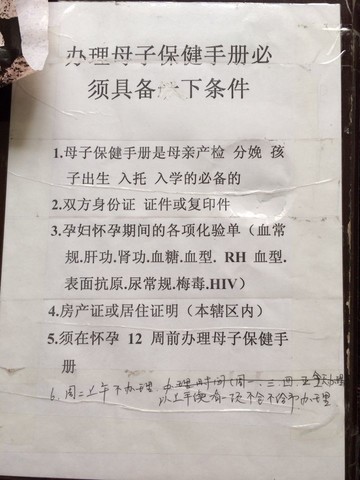 办理母子保健手册必
须具备 下条件
1.母子保健手册是母亲产检 分娩 孩
子出生 入托 入学的必备的
2.双方身份证 证件或复印件
3.孕妇怀孕期间的各项化验单（血常
规.肝功.肾功.血糖.血型. RH 血型.
表面抗原.尿常规.梅毒.HIV）
4.房产证或居住证明（本辖区内）
5.须在怀孕 12 周前办理母子保健手
册
6.周二上午不办理 办理时间（周一.三.四.五 办理
以上 有一项不全不给予办理